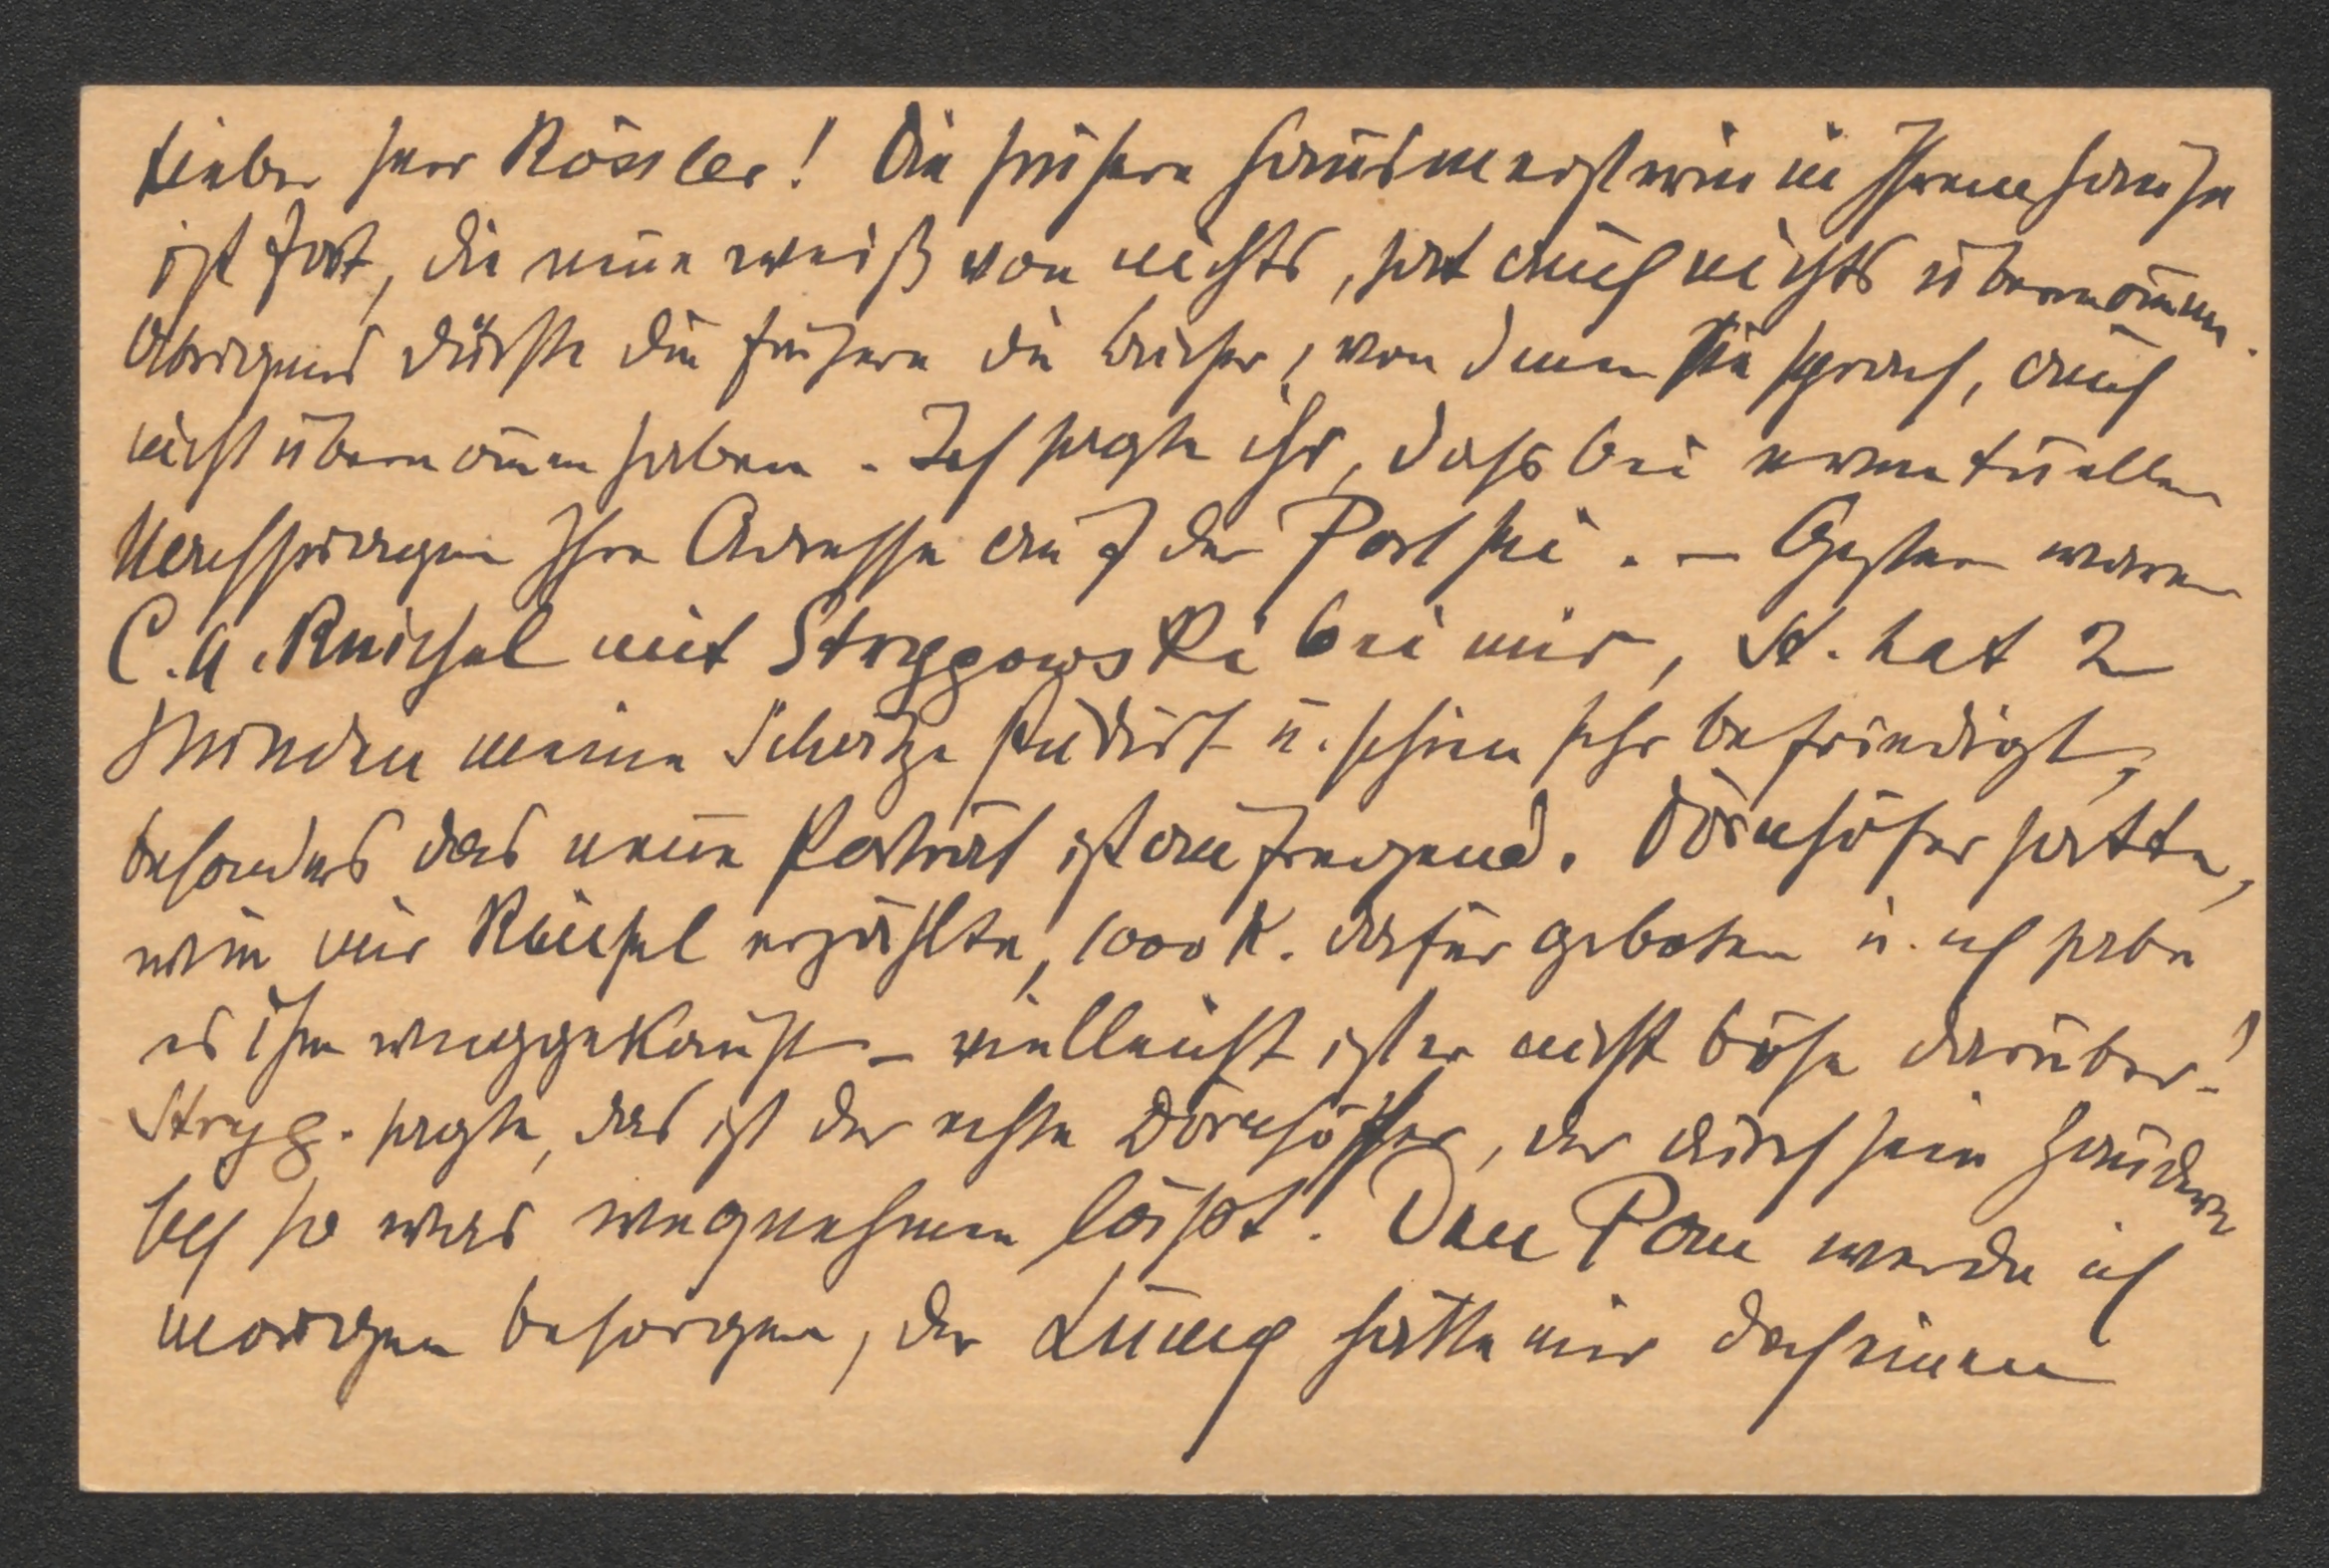 Lieber Herr Rössler! Die frühere Hausmeisterin in Ihrem Hause
ist fort, die neue weiß von nichts, hat auch nichts übernom̄en.
Übrigens dürfte die frühere die Bücher, von denen sie sprach, auch
nicht übernom̄en haben. Ich sagte ihr, dass bei eventuellen
Nachfragen Ihre Adresse auf der Post sei. – Gestern waren
C. A. Reichel mit Strzygowski bei mir, St. hat 2
Stunden meine Schätze studirt u. schien sehr befriedigt,
besonders das neue Porträt ist aufregend. Dörnhöfer hatte,
wie mir Reichel erzählte, 1000 K. dafür geboten u. ich habe
es ihm weggekauft – vielleicht ist er nicht böse darüber!
Stryg. sagte, das ist der echte Dörnhöffer, der durch sein Zaudern
sich so was wegnehmen läßt. Den Pan werde ich
morgen besorgen, der Lung hätte mir doch einen